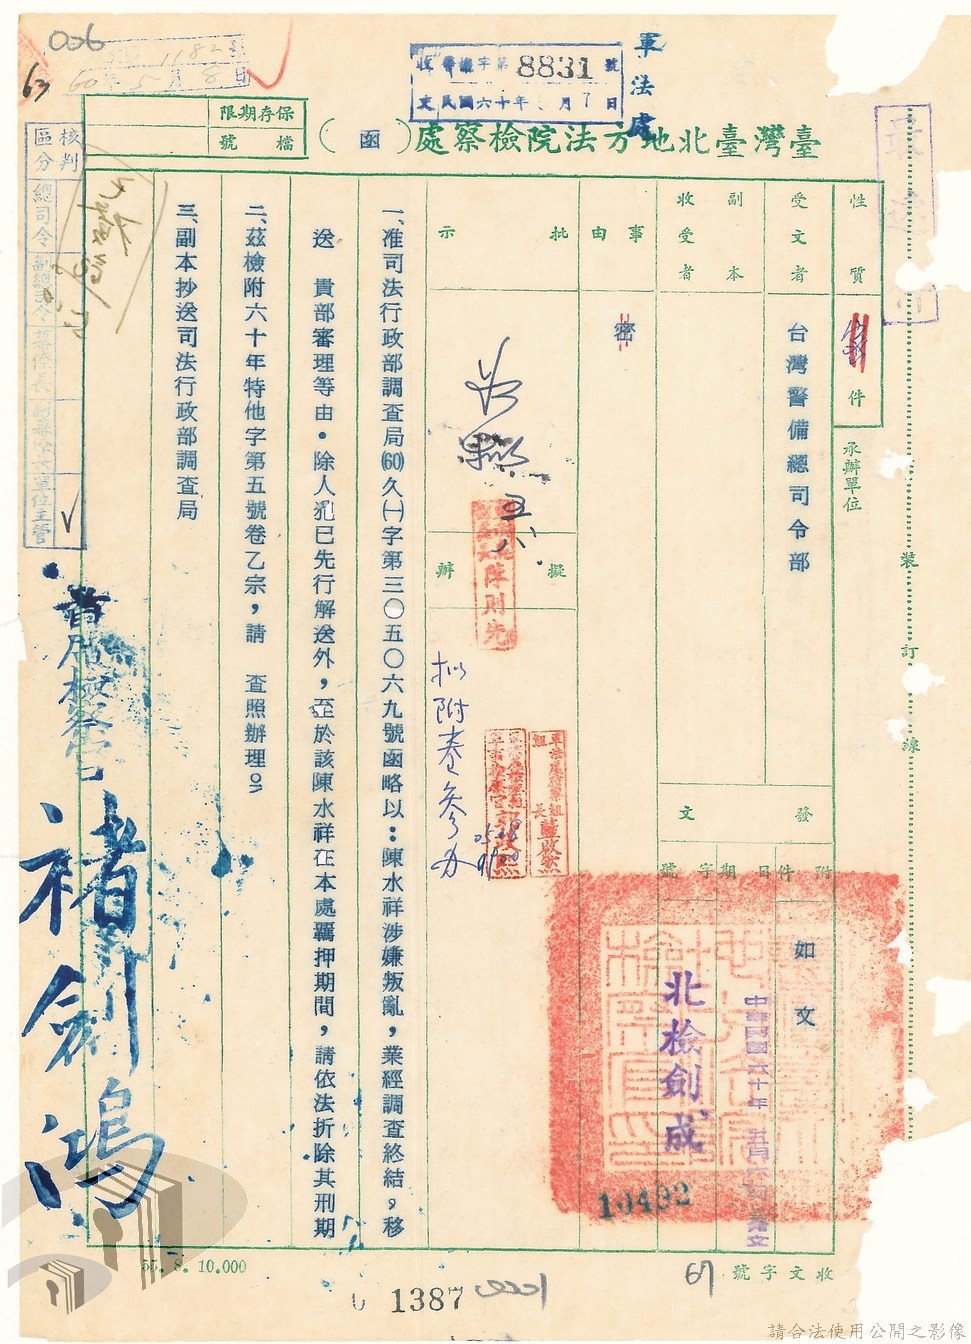 006
63
1182號
60年5月8日
收警檢字第8831號
文民國六十年 月7日
軍法處
臺灣臺北地方法院檢察處（函）
保存期限
檔號
核判區分
總司令
副總司令
參謀長
單位主管
性質
件
承辦單位
受文者
台灣警備總司令部
副本收受者
事由
密
批示
擬辦
擬附卷參办
陳則先
發文
附件
日期
字號
如文
中華民國六十年五月
發文
北檢劍成
10492
一、准司法行政部調查局(60)久(一)字第三〇五〇六九號函略以：陳水祥涉嫌叛亂，業經調查終結，移
送 貴部審理等由。除人犯已先行解送外，至於該陳水祥在本處羈押期間，請依法折除其刑期
二、茲檢附六十年特他字第五號卷乙宗，請 查照辦理。
三、副本抄送司法行政部調查局
首席檢察官
褚劍鴻
裝
訂
線
55. 8. 10.000
1387
67
收文字號
請合法使用公開之影像